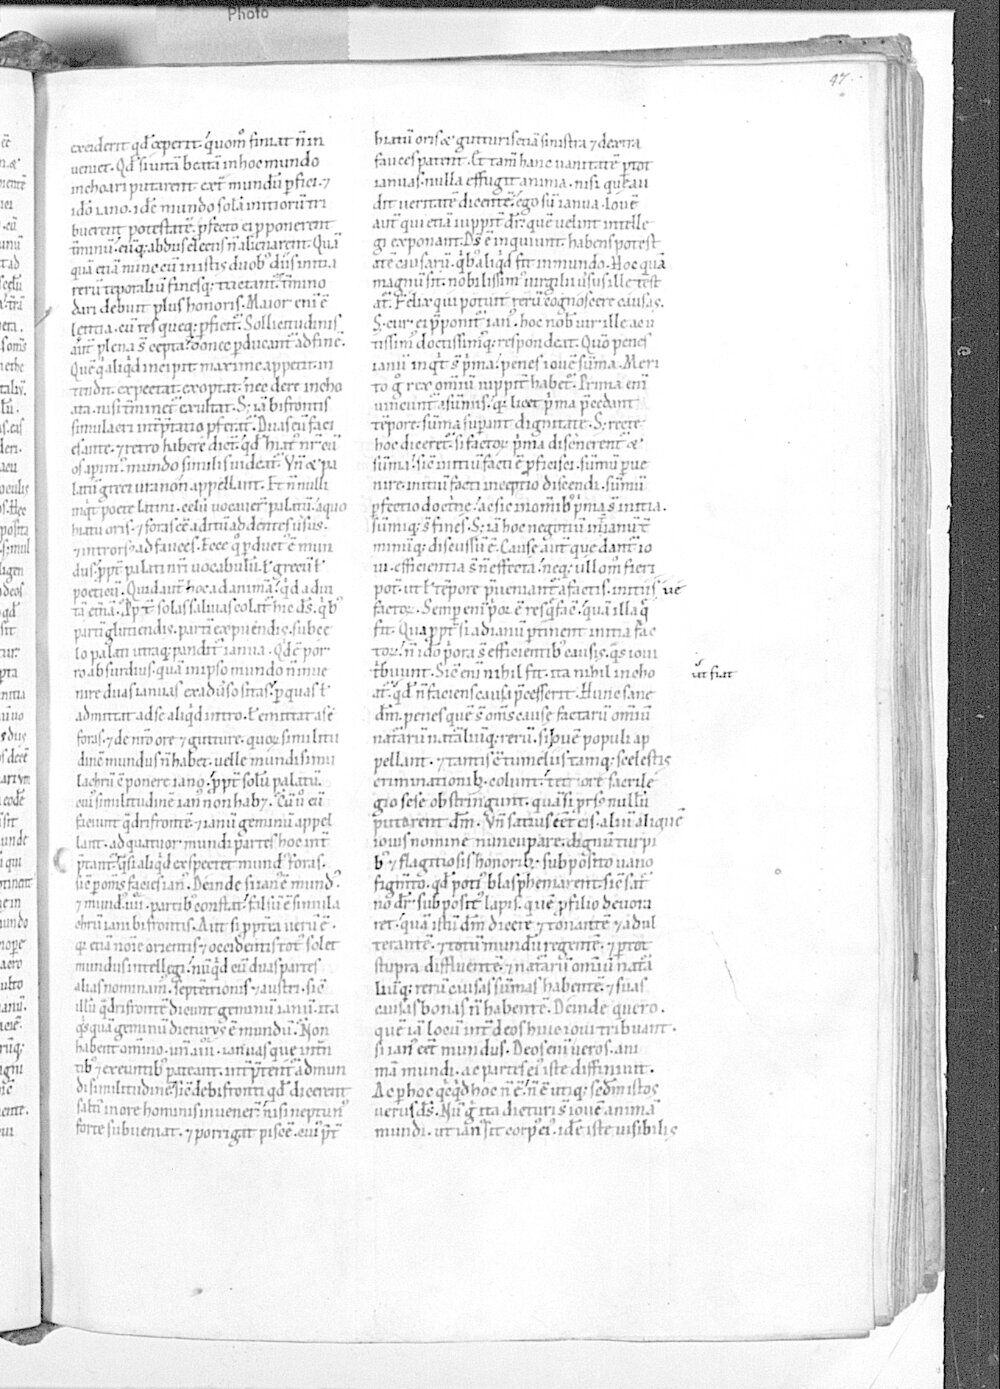 Photo
47
exciderit qđ ceperit. quom̊ finiat n̄ in
ueniet. Qđ si uitā beatā in hoc mundo
inchoari putarent ext̄ mundū ꝑfici. ⁊
iđo iano. iđe mundo solā initiorū tri
buerent potestatē. ꝓfecto ei p̄ponerent
t̄minū. eūq; ab dus selectis n̄ alienarent. Quā
quā etiā nunc cū in istis duob; diis initia
rerū tēporaliū finesq; tractant. t̄mino
dari debuit plus honoris. Maior eni ē
letitia. cū res queq; ꝑficit̄. Sollicitudinis
aūt plena s̄ cepta. donec ꝑducant̄ ad finē.
Quē q̇ aliqđ incipit maxime appetit. in
tendit. expectat. exoptat. nec de re incho
ata. nisi t̄minet̄ exultat. S; iā bifrontis
simulacri int̄p̄tatio ꝓferat̄. Duas eū faci
es ante. ⁊ retro habere dict̄. qđ hiat; nr̄ cū
os apim;. mundo similis uideat̄. Vn̄ & pa
latū greci uranon appellant. Et n̄nulli
inq̇t poete latini. celū uocauer̄ palatū. a quo
hiatu oris. ⁊ foras eē aditū ad dentes uersus.
⁊ introrsū ad fauces. Ecce q̊ ꝑduct; ē mun
dus. ꝓpt̄ palati nr̄i uocabulū. ł grecū ł
poeticū. Quid aut̄ hoc ad animā. qđ ad ui
tā et̄nā. Ꝓpt̄ solas saliuas colat̄ hic ds̄. q̇b;
partī glutiendis. partī expuendis. sub ce
lo palati utraq; pandit̄ ianua. Qđ ē por
ro absurdius. quā in ipso mundo n̄ inue
nire duas ianuas ex aduerso sitas. ꝑ quas ł
admittat ad se aliqđ intro. ł emittat a se
foras. ⁊ de nr̄o ore ⁊ gutture. quor̄ similitu
dinē mundus n̄ habet. uelle mundi simu
lachrū cōponere iano. ꝓpt̄ solū palatū.
cui; similitudinē ian; non hab;. Cū ū eū
faciunt q̇drifrontē. ⁊ ianū geminū appel
lant. ad quatuor mundi partes hoc int̄
p̄tant̄. q̇si aliqđ expectet mund; foras.
sic̄ ꝑ om̄s facies ian;. Deinde si ian; ē mund;.
⁊ mund; .iiii. partib; constat. falsū ē simula
chrū iani bifrontis. Aut si ꝓpt̄ea uerū ē.
q; etiā noīe orientis ⁊ occidentis tot; solet
mundus intellegi. nūq̇d cū duas partes
alias nominam;. septētrionis ⁊ austri. sic̄
illū q̇drifrontē dicunt geminū ianū. ita
q̇squā geminū dicturus ē mundū. Non
habent om̄ino. un̄ .iiii. ianuas que intn̄
tib; ⁊ exeuntib; pateant. int̄p̄tent̄ ad mun
di similitudinē. Sic̄ de bifronti qđ dicerent
saltī in ore hominis inuener̄. nisi neptun;
forte subueniat. ⁊ porrigat piscē. cui p̄t̄
hiatū oris & gutturis etiā sinistra ⁊ dextra
fauces patent. Et tam̄ hanc uanitatē ꝑ tot
ianuas. nulla effugit anima. nisi que au
dit ueritatē dicentē. ego sū ianua. Ioue
aut̄ qui etiā iuppit̄ dr̄. quē uelint intelle
gi exponant. Ds̄ ē inquiunt. habens potest
atē causarū. q̇b; aliqđ fit in mundo. Hoc quā
magnū sit. nobilissim; uirgilii uersus ille test
at̄. Felix qui potuit rerū cognoscere causas.
S; cur ei p̄ponit̄ ian;. hoc nob̄ uir ille acu
tissim; doctissimusq; respondeat. Qm̄ penes
ianū inq̇t s̄ ṗma. penes ioue sūma. Meri
to g̊ rex om̄iū iuppit̄ habet̄. Prima eni
uincunt̄ a sūmis. q; licet ṗma p̄cedant
tēpore. sūma suꝑant dignitate. S; recte
hoc diceret̄. si factor̄ ṗma discernerent̄ &
sūma. sic̄ initiū facti ē ꝓficisci. sūmū ꝑue
nire. initiū facti inceptio discendi. sūmū
ꝑfectio docṫne. ac sic in om̄ib; ṗma s̄ initia.
sūmiq; s̄ fines. S; iā hoc negotiū int̄ ianū ⁊ t̄
minūq; discussū ē. Cause aut̄ que dant̄ io
ui. efficientia s̄ n̄ effecta. neq; ullom̊ fieri
pot̄. ut ł tēpore p̄ueniant̄ a factis. initiis ue
factor̄. Semꝑ eni ṗor ē res q̄ fac̄. quā illa q̄
fit. Quaꝓpt̄ si ad ianū ꝑtinent initia fac
tor̄. n̄ iđo ṗora s̄ efficientib; causis. q̇s ioui
ṫbuunt. Sic̄ eni nihil fit. ita nihil incho
at̄. qđ n̄ faciens causa p̄cesserit. Hunc sane
dm̄. penes quē s̄ om̄s cause factarū om̄iū
naturarū naturaliūq; rerū. si iouē populi ap
pellant. ⁊ tantis cōtumeliis tamq; scelestis
criminationib; colunt. tetriore sacrile
gio sese obstringunt. quā si prs̄ nullū
putarent dm̄. Vn̄ satius eēt eis. aliū aliquē
iouis nomine nuncupare. dignū turpi
b; ⁊ flagitiosis honorib;. subposito uano
figm̄to. qđ poti; blasphemarent. sic̄ sat̄
no dr̄. subposit; lapis. quē ꝓ filio deuora
ret. quā istū dm̄ dicere ⁊ tonantē ⁊ adul
terantē. ⁊ totū mundū regentē. ⁊ ꝑ tot
stupra diffluentē. ⁊ naturarū om̄iū natu
raliūq; rerū causas sūmas habente. ⁊ suas
causas bonas n̄ habentē. Deinde quero.
quē iā locū int̄ deos huic ioui tribuant.
si ian; eēt mundus. Deos eni ueros. ani
mā mundi. ac partes ei; iste diffiniuit.
Ac ꝑ hoc q̇cq̇d hoc n̄ ē. n̄ ē utiq; sedm̄ istos
uerus ds̄. Nū g̊ ita dicturi s̄ iouē animā
mundi. ut ian; sit corp; ei;. iđ ē iste uisibilis
ut fiat